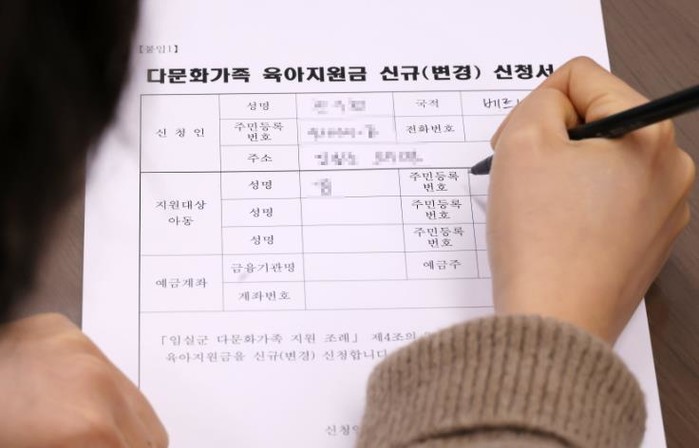 【붙임1】
다문화가족 육아지원금 신규(변경) 신청서
신 청 인
성명
국적
베트
주민등록
번호
전화번호
주소
지원대상
아동
성명
주민등록
번호
성명
주민등록
번호
성명
주민등록
번호
예금계좌
금융기관명
예금주
계좌번호
「임실군 다문화가족 지원 조례」 제4조의
육아지원금을 신규(변경) 신청합니다
신청